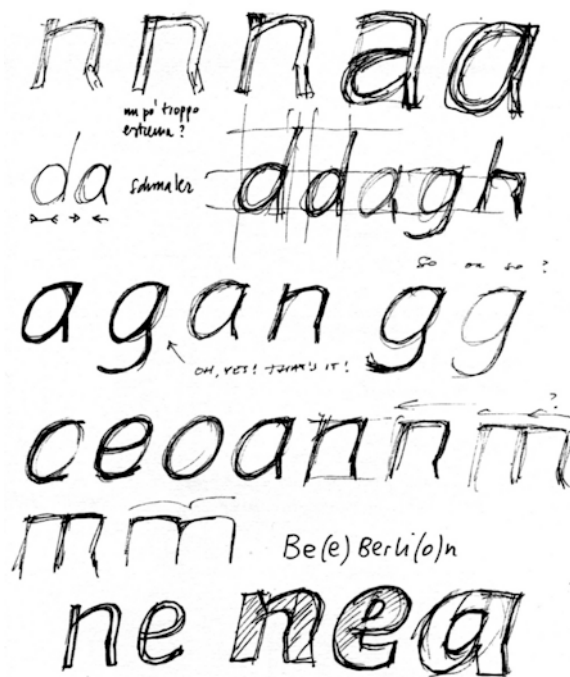 n n n a a
un po' troppo
estrema?
d a schmaler d d a g h
so or so ?
a g a n g g
OH, YES! THAT'S IT!
c e o a n n m ?
m m
Be(e) Berli(o)n
n e n e a